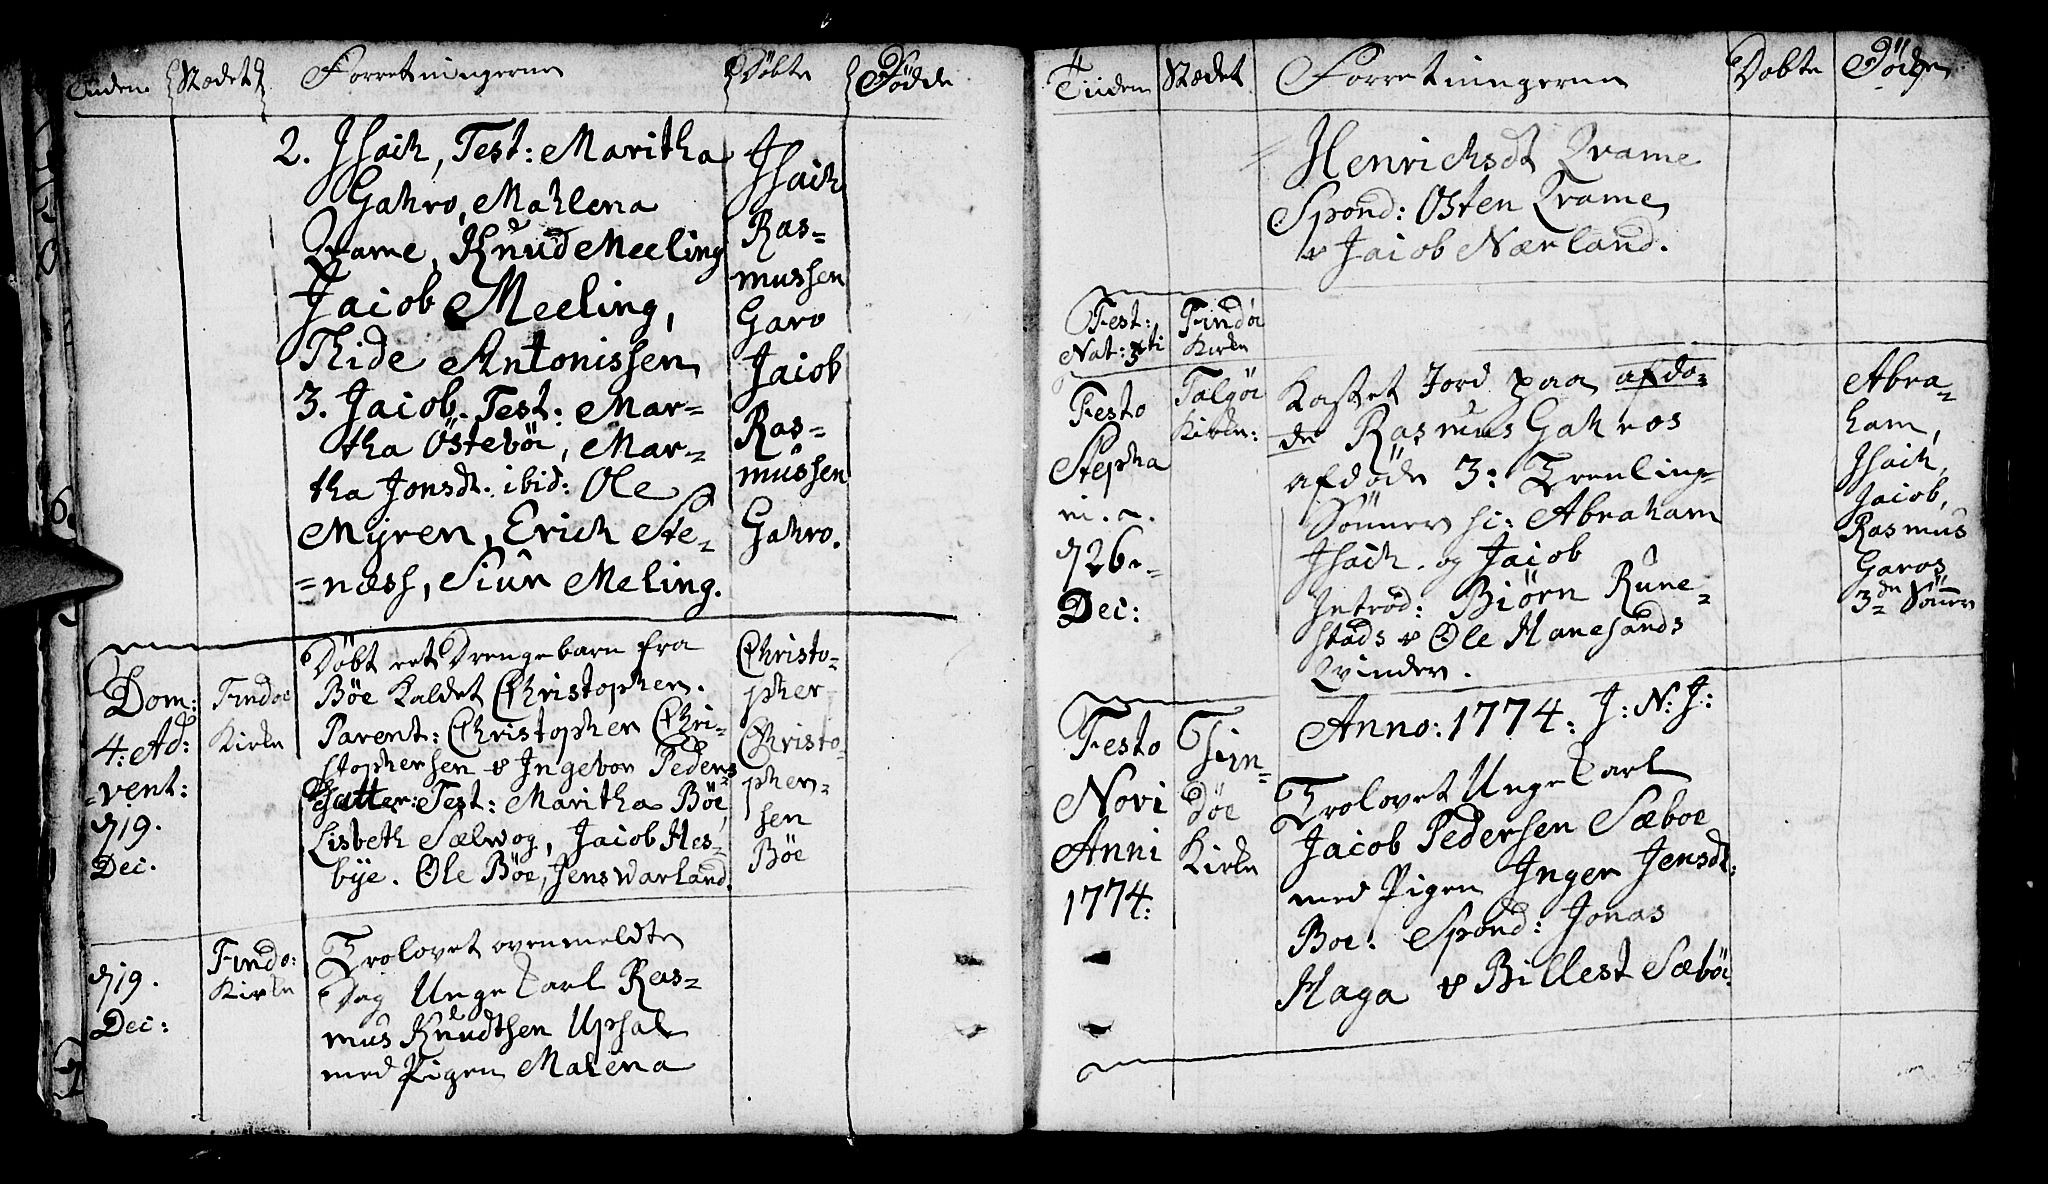 Tiiden Stædet Forretningerne Døbte Fødde
2. Jsaih, Test: Maritha
Gahro, Mahlena
Qvame, Knud Meeling
Jacob Meeling,
Thide Antonissen
3. Jacob. Test: Mar=
tha Östeböe, Mar=
tha Jonsdt. ibid: Ole
Myren, Erich Ste=
=næss, Siur Meling.
Jsaih
Ras=
mussen
Garo
Jacob
Ras=
mussen
Gahro.
Dom:
4. Ad:
=vent:
d 19.
Dec.
Findöe
Kirke
Döbt eet Drengebarn fra
Böe kaldet Christopher.
Parent: Christopher Chri=
stophersen & Ingebor Peders
Datter: Test: Maritha Böe,
Lisbeth Sælwog, Jacob Hes=
bye. Ole Böe, Jens Warland.
Christo=
pher
Christo=
pher=
sen
Böe
d 19.
Dec:
Findö:
Kirke
Trolovet ovenmeldte
Dag Unge Carl Ras=
mus Knudtsen Upsal
med Pigen Malena
Tiiden Stædet Forretningerne Döbte Döde
Henrichsdt Qvame
Spond: Osten Qvame
& Jacob Nærland.
Fest:
Nat: Xti
Findöe
Kirke
Festo
Stepha
ni.
d 26
Dec:
Talgöe
Kirke:
Kastet Jord paa afdö=
de Rasmus Gahros
afdøde 3: Trenling=
Sönner sc: Abraham
Jsaih. og Jacob
Introd: Biörn Rune=
stads & Ole Hanesands
Qvinder.
Abra=
ham,
Jsaih,
Jacob,
Rasmus
Garos
3de Sönner
Festo
Novi
Anni
1774:
Fin=
döe
Kirke
Anno: 1774: J: N: J:
Trolovet Unge Carl
Jacob Pedersen Sæboe
med Pigen Inger Jensdt:
Boe: Spond: Jonas
Haga & Billest Sæböe